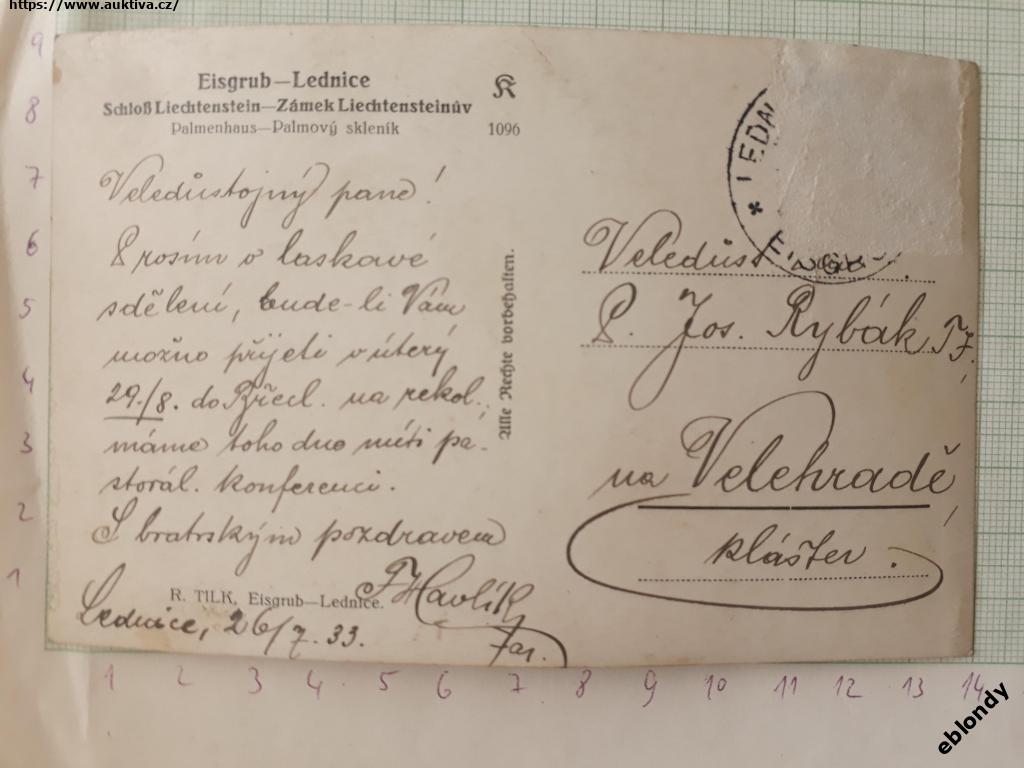 https://www.auktiva.cz/
Eisgrub—Lednice
Schloß Liechtenstein—Zámek Liechtensteinův
Palmenhaus—Palmový skleník
K
1096
Veledůstojný pane!
Prosím o laskavé
sdělení, bude-li Vám
možno přijeti v úterý
29./8. do Břecl. na rekol.;
máme toho dne míti pa-
storál. konferenci.
S bratrským pozdravem
Havlík
far.
R. TILK, Eisgrub—Lednice.
Lednice, 26/7. 33.
Alle Rechte vorbehalten.
Veledůst
P. Jos. Rybák T.J.,
na Velehradě,
klášter.
9
8
7
6
5
4
3
2
1
1 2 3 4 5 6 7 8 9 10 11 12 13 14
eblondy